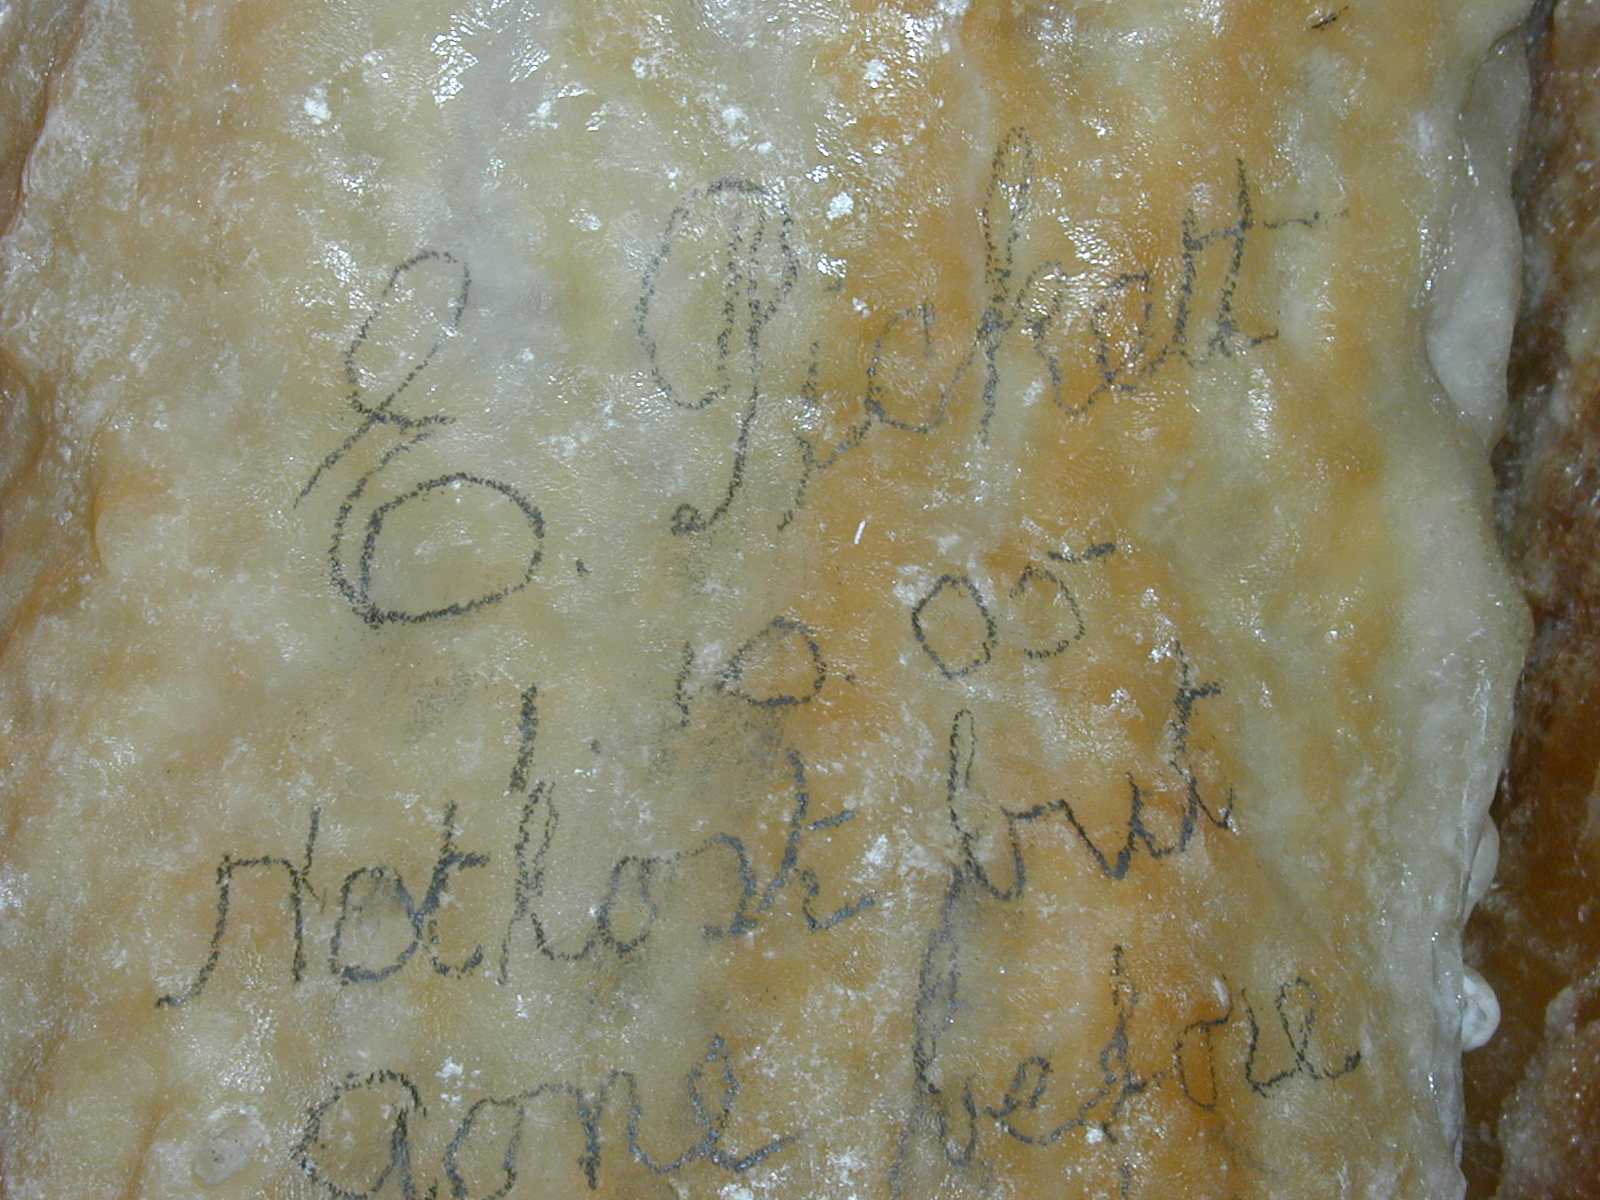 E Pickett
6. 10. 05
Not lost but
gone before